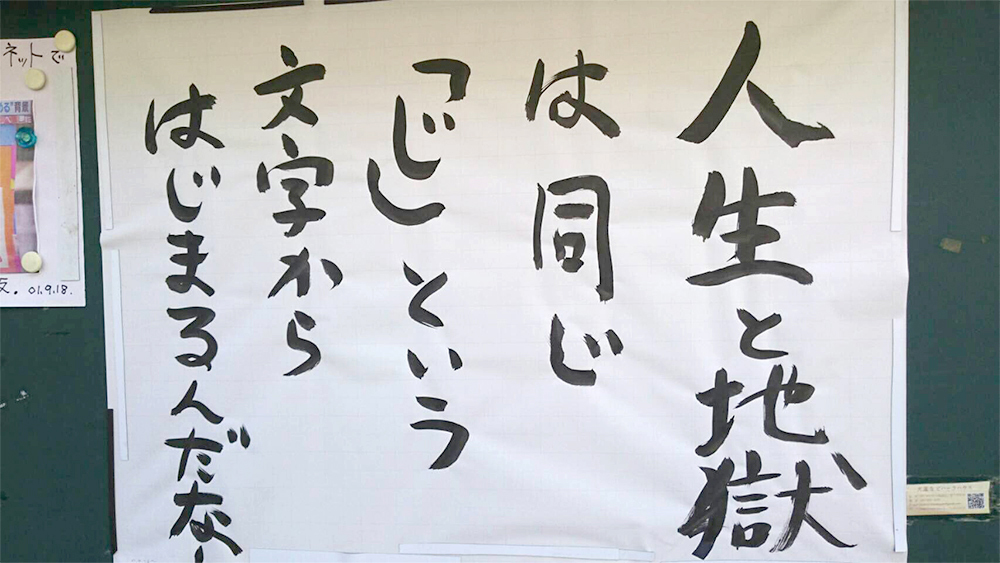 人生と地獄
は同じ
「じ」という
文字から
はじまるんだなー
ネットで
01.9.18.